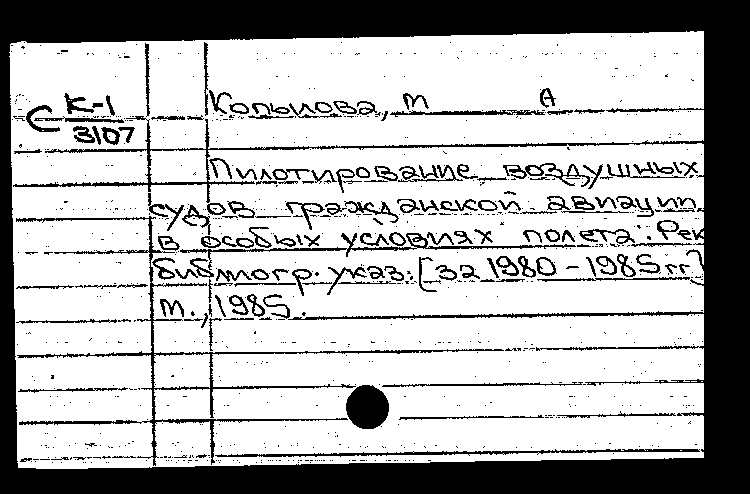 С К-1
3107
Копылова, М А
Пилотирование воздушных
судов гражданской авиации
в особых условиях полета: Рек
библиогр. указ. [за 1980-1985 гг]
М., 1985.